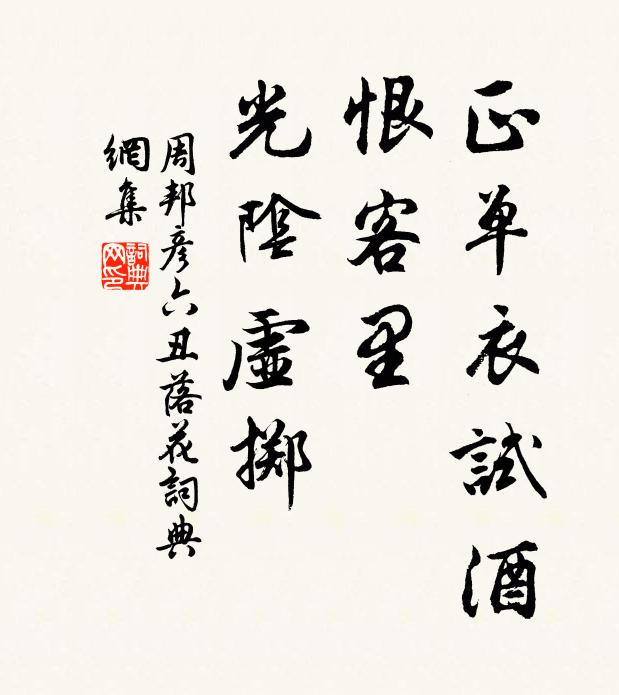 正单衣試酒
恨客里
光陰虛擲
周邦彦六丑落花詞典
網集
詞典
网印